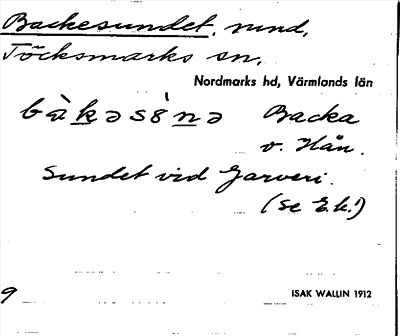 Backesundet, sund,
Töcksmarks sn,
Nordmarks hd, Värmlands län
bàkəsònə Backa
v. Hån.
Sundet vid Garveri.
(se E.k.!)
9 ISAK WALLIN 1912